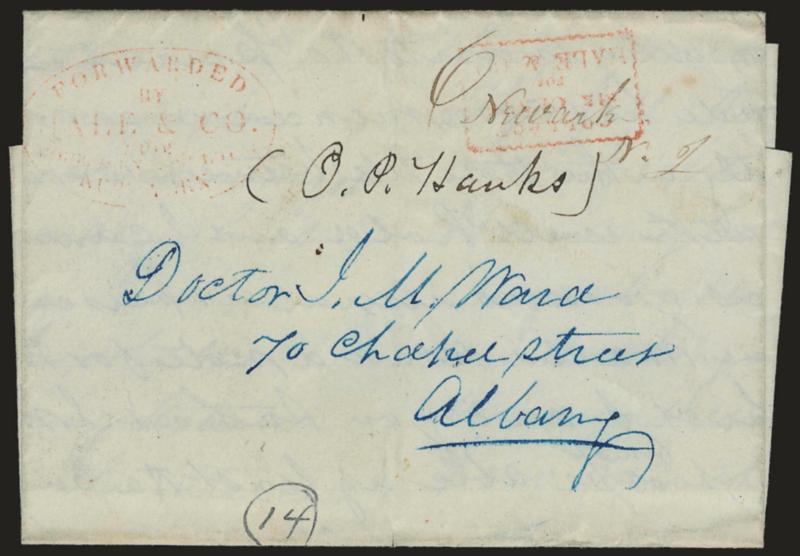 FORWARDED
BY
ALE & CO.
HALE &
Newark
N. J
(O. P. Hanks)
Doctor J. M. Ward
70 Chapel street
Albany
14